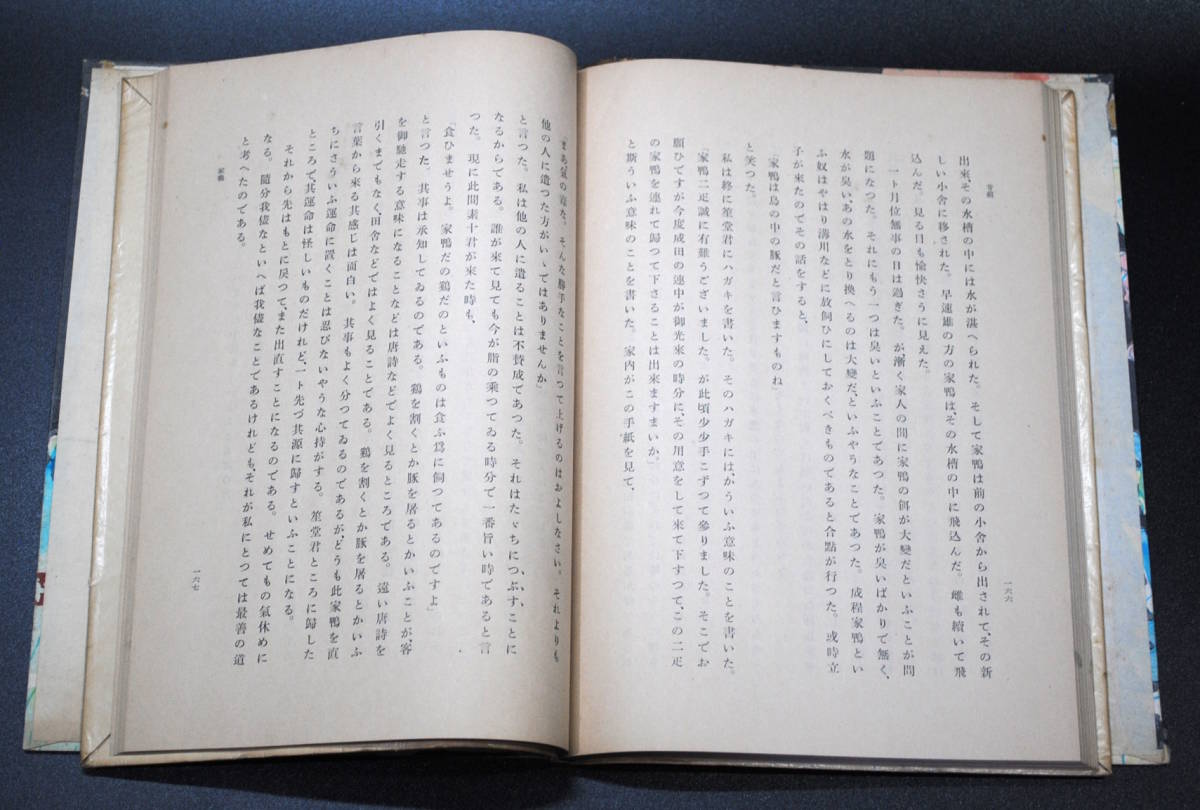 出來、その水槽の中には水が湛へられた。そして家鴨は前の小舍から出されて、その新
しい小舍に移された。早速雄の方の家鴨は、その水槽の中に飛込んだ。雌も續いて飛
込んだ。見る目も愉快さうに見えた。
一ト月位無事の日は過ぎた。が漸く家人の間に家鴨の餌が大變だといふことが問
題になつた。それにもう一つは臭いといふことであつた。家鴨が臭いばかりで無く、
水が臭い、あの水をとり換へるのは大變だ、といふやうなことであつた。成程家鴨とい
ふ奴はやはり溝川などに放飼ひにしておくべきものであると合點が行つた。或時立
子が來たのでその話をすると、
「家鴨は鳥の中の豚だと言ひますものね」
と笑つた。
私は終に笙堂君にハガキを書いた。そのハガキには、かういふ意味のことを書いた。
「家鴨二疋誠に有難うございました。が此頃少少手こずつて參りました。そこでお
願ひですが今度成田の連中が御光來の時分に、その用意をして來て下すつて、この二疋
の家鴨を連れて歸つて下さることは出來ますまいか。」
と斯ういふ意味のことを書いた。家内がこの手紙を見て、
一六六
「まあ氣の毒な。そんな勝手なことを言つて上げるのはおよしなさい。それよりも
他の人に遣つた方がいゝではありませんか」
と言つた。私は他の人に遣ることは不贊成であつた。それはたゞちにつぶすことに
なるからである。誰が來て見ても今が脂の乘つてゐる時分で一番旨い時であると言
つた。現に此間素十君が來た時も、
「食ひませうよ。家鴨だの鷄だのといふものは食ふ爲に飼つてあるのですよ」
と言つた。其事は承知してゐるのである。鷄を割くとか豚を屠るとかいふことが、客
を御馳走する意味になることなどは唐詩などでよく見るところである。遠い唐詩を
引くまでもなく、田舍などではよく見ることである。鷄を割くとか豚を屠るとかいふ
言葉から來る其感じは面白い。其事もよく分つてゐるのであるが、どうも此家鴨を直
ちにさういふ運命に置くことは忍びないやうな心持がする。笙堂君ところに歸した
ところで、其運命は怪しいものだけれど、一ト先づ其源に歸すといふことになる。
それから先はもとに戻つて、また出直すことになるのである。せめてもの氣休めに
なる。隨分我儘なといへば我儘なことであるけれども、それが私にとつては最善の道
と考へたのである。
家鴨
一六七